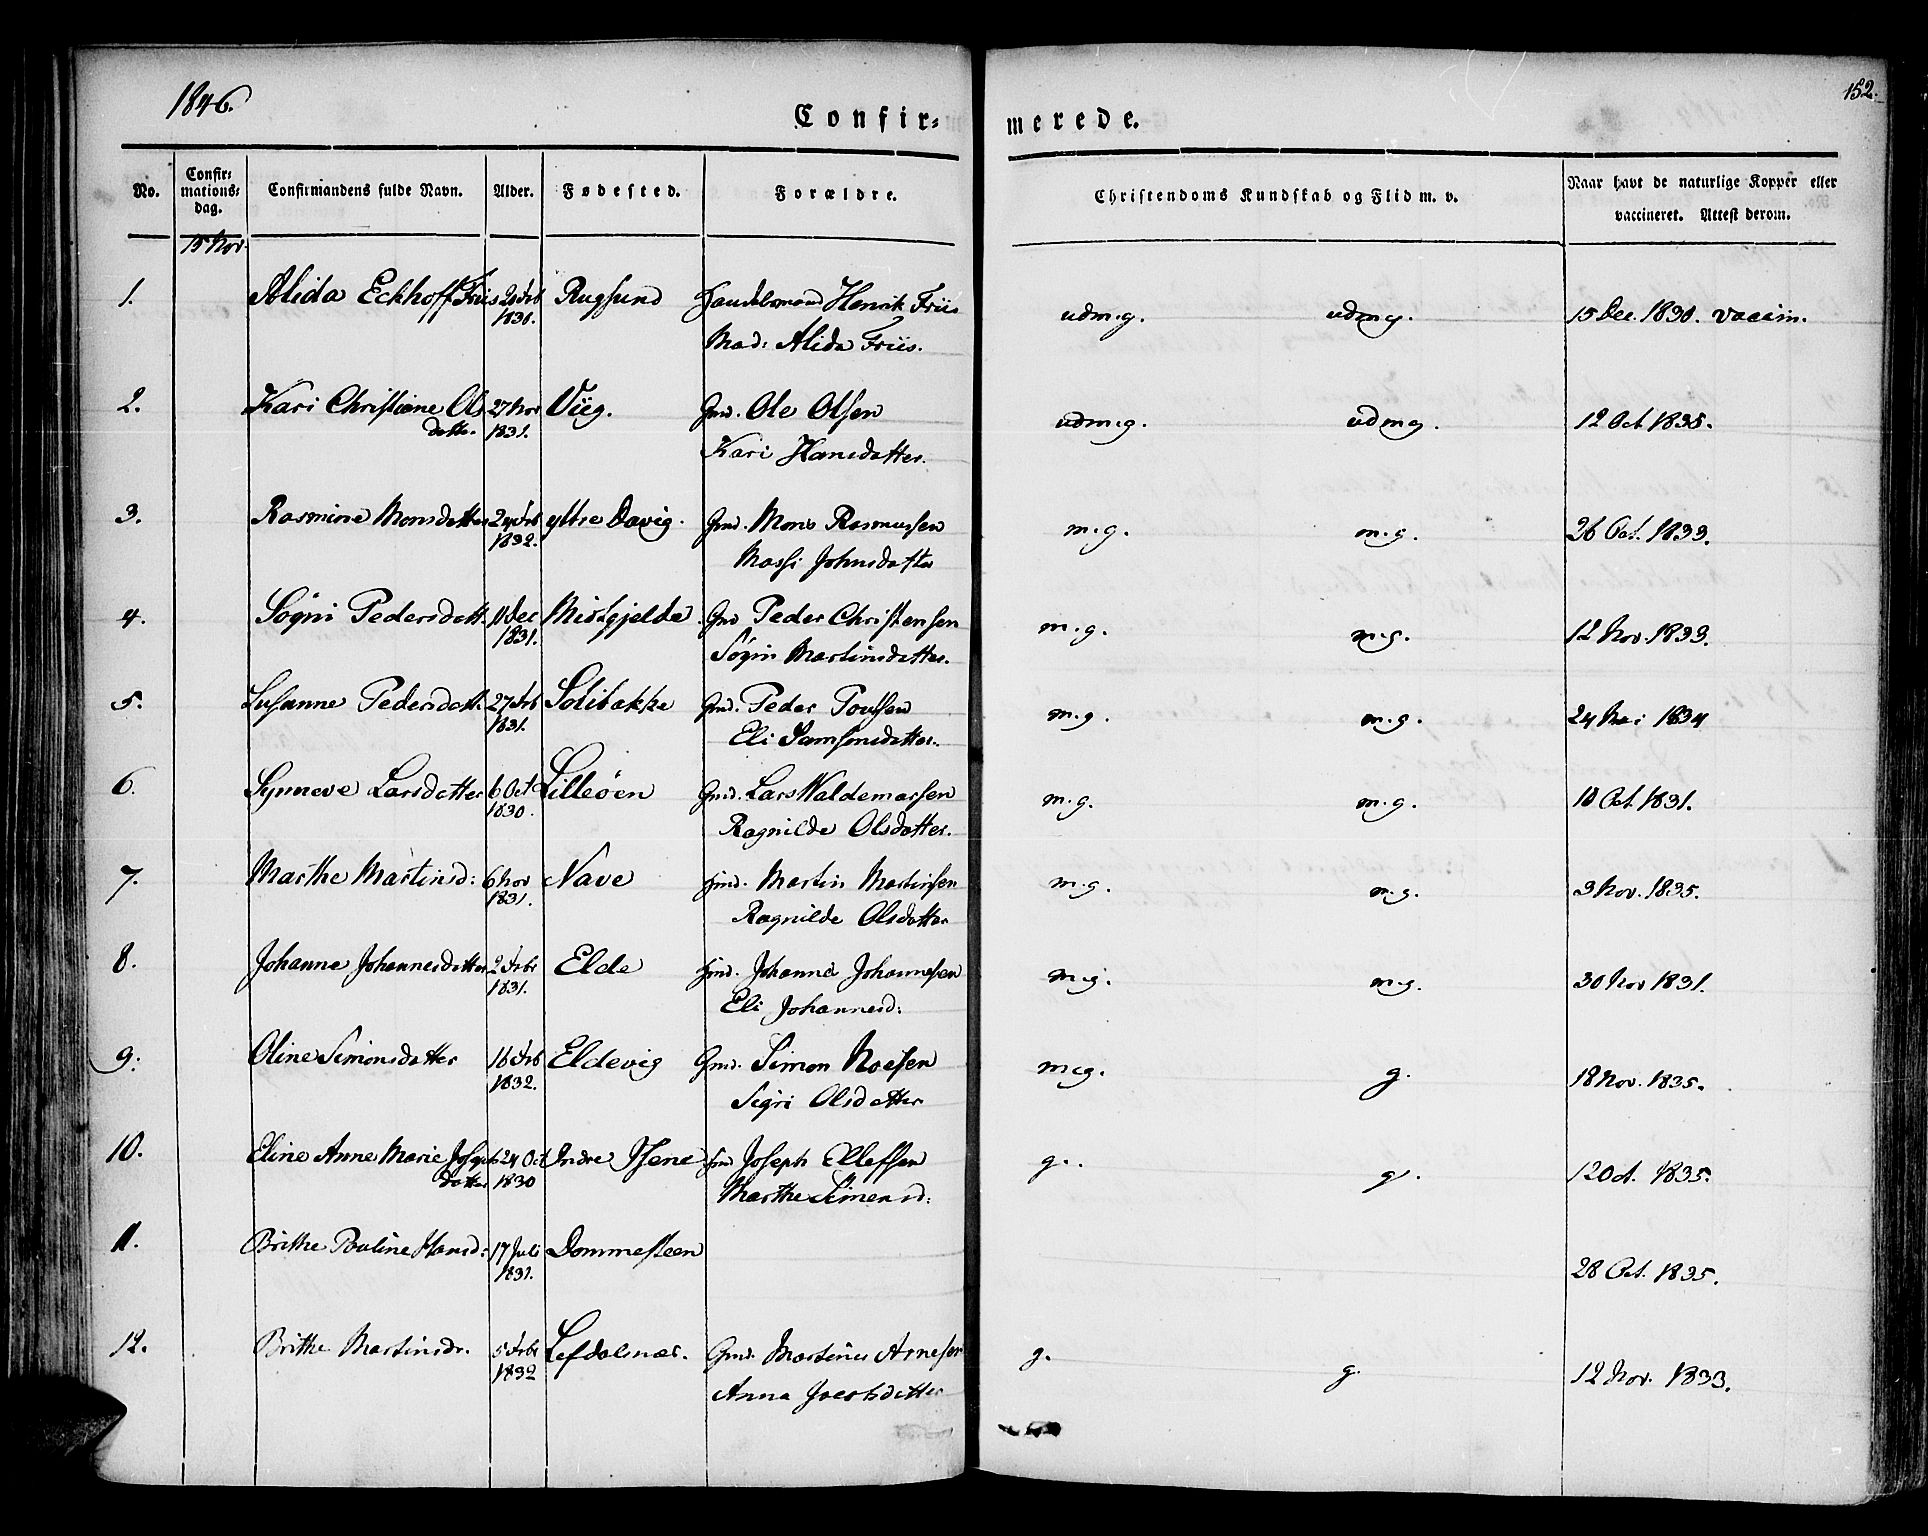 1846.
152.
Confir= merede.
No. Confir= mations= dag. Confirmandens fulde Navn. Alder. Fødested. Forældre. Christendoms Kundskab og Flid m. v. Naar havt de naturlige Kopper eller vaccineret. Attest derom.
15 Nov.
1. Alida Eckhoff Friis Rugsund Handelsmand Henrik Friis udm.g. udm.g. 15 Dec. 1830. vaccin.
Mad: Alida Friis.
2. Kari Christiane Ols 27 Nov Viig. Gmd. Ole Olsen udm.g. udm.g. 12 Oct. 1835.
datter. 1831. Kari Hansdatter.
3. Rasmine Monsdatter 24 Feb ytre Davig. Gmd. Mons Rasmussen m.g. m.g. 26 Oct. 1833.
1832. Massi Johnsdatter
4. Søgni Pedersdatt. 11 Dec Mistgjelde Gmd Peder Christensen m.g. m.g. 12 Nov. 1833.
1831. Søgni Martinsdatter.
5. Susanne Pedersdatt. 27 Feb Solibakke Gmd. Peder Poulsen m.g. m.g. 24 Mai 1834
1831. Eli Samsonsdatter.
6. Synneve Larsdatter 6 Oct Lilleøen Gmd. Lars Waldemarsen m.g. m.g. 10 Oct. 1831.
1830. Ragnilde Olsdatter.
7. Marthe Martinsd: 6 Nov Nave Hmd. Martin Martinsen m.g. m.g. 3 Nov. 1835.
1831. Ragnilde Olsdatter
8. Johanne Johannesdatter 2 Febr Elde Hmd. Johannes Johannesen m.g. m.g. 30 Nov 1831.
1831. Eli Johannesd:
9. Oline Simonsdatter 16 Feb Eldevig Gmd. Simon Noesen m.g. g. 18 Nov. 1835.
1832. Sigri Olsdatter
10. Eline Anne Marie Joseph 24 Oct Indre Hmd Joseph Ellefsen g. g. 12 Oct. 1835.
datter 1830 Marthe Simensd:
11. Brithe Pauline Hansd: 17 Juli Dommesteen 28 Oct. 1835.
1831.
12. Brithe Martinsdr. 5 Febr Lefdalsnæs. Gmd. Martinus Arnesen g. g. 12 Nov. 1833.
1832 Anna Iversdatter